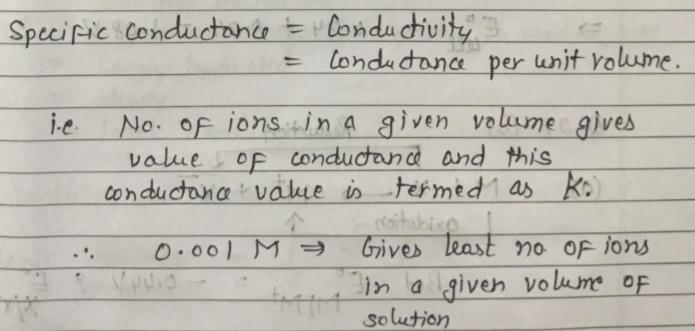 Specific conductance = Conductivity
= Conductance per unit volume.
i.e. No. of ions in a given volume gives
value of conductance and this
conductance value is termed as K.
∴ 0.001 M ⇒ Gives least no of ions
in a given volume of
solution